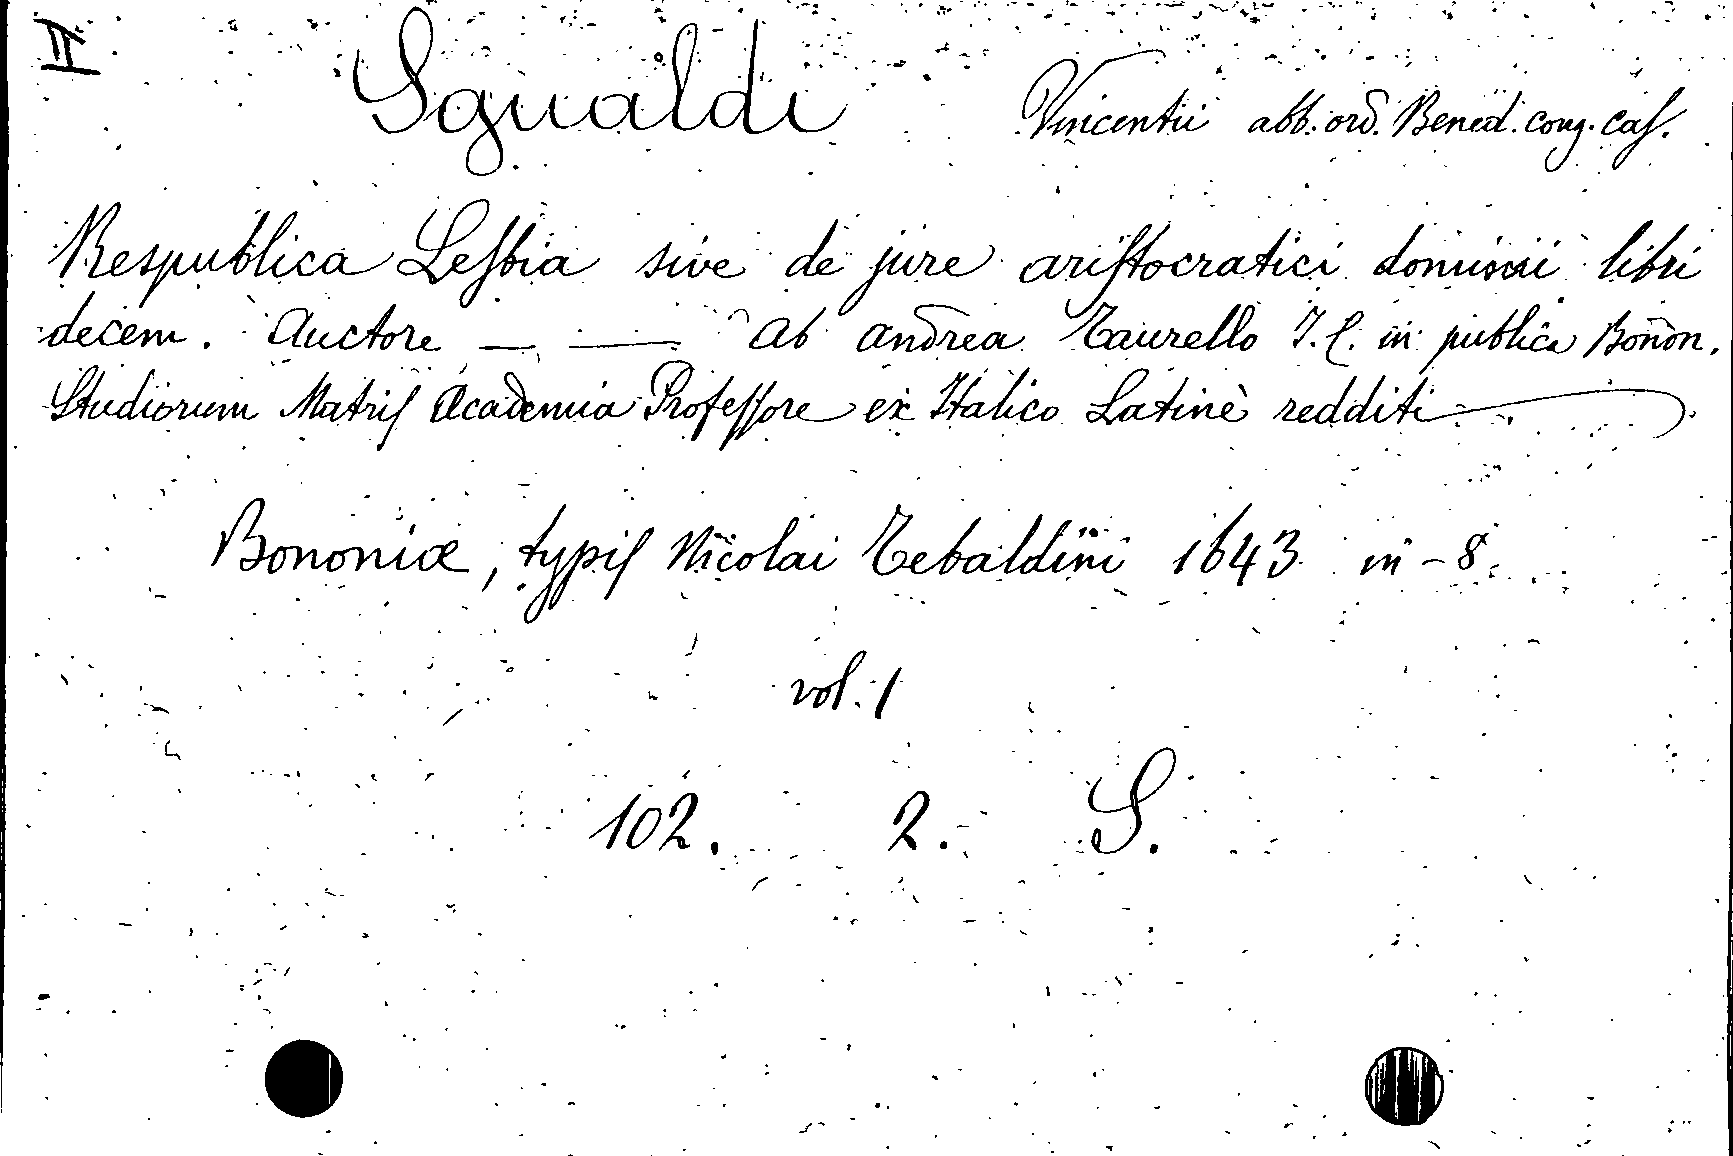 II
Sgualdi Vincentii abb. ord. Bened. cong. caſ.
Respublica Leſbia sive de jure ariſtocratici dominii libri
decem. Auctore — — Ab Andrea Taurello J. C. in publica Bonon.
Studiorum Matriſ Academia Profeſſore ex Italico Latinè redditi
Bononiæ, typiſ Nicolai Tebaldini 1643 in-8.
vol. 1
102. 2. S.